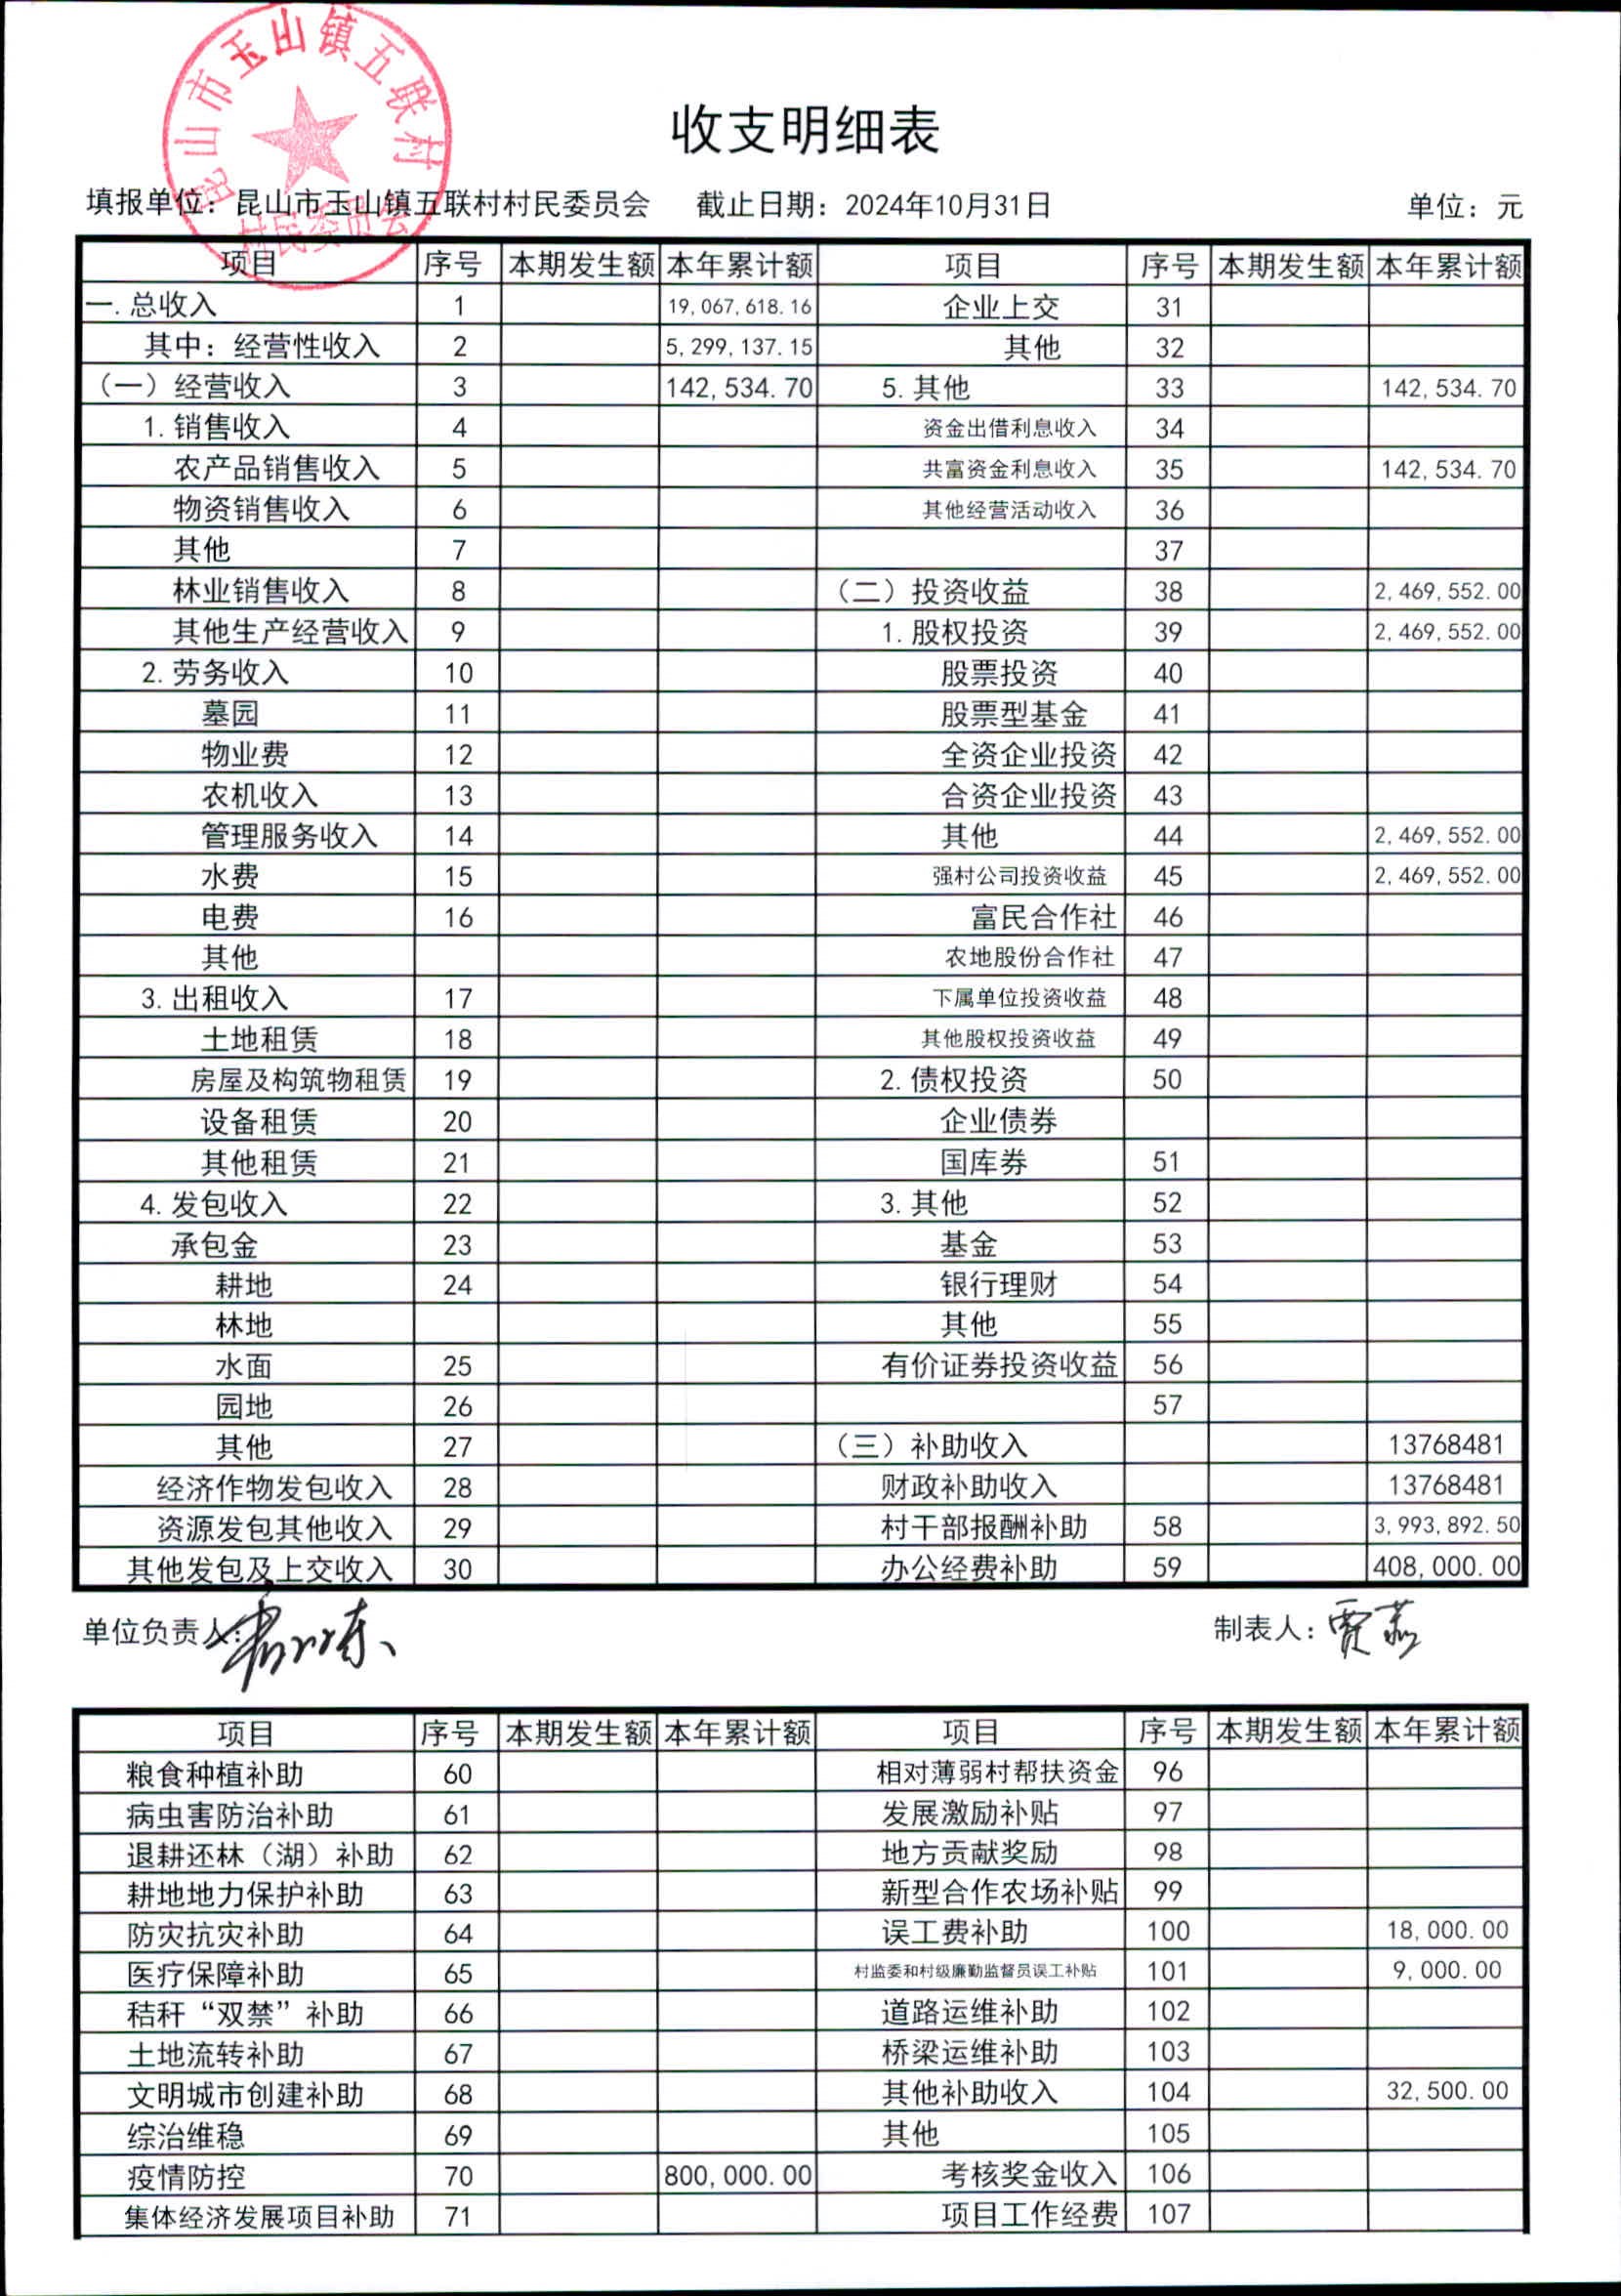 昆山市玉山镇五联村
村民委员会
收支明细表
填报单位：昆山市玉山镇五联村村民委员会 截止日期：2024年10月31日 单位：元
项目 序号 本期发生额 本年累计额 项目 序号 本期发生额 本年累计额
一.总收入 1 19,067,618.16 企业上交 31
其中：经营性收入 2 5,299,137.15 其他 32
（一）经营收入 3 142,534.70 5.其他 33 142,534.70
1.销售收入 4 资金出借利息收入 34
农产品销售收入 5 共富资金利息收入 35 142,534.70
物资销售收入 6 其他经营活动收入 36
其他 7 37
林业销售收入 8 （二）投资收益 38 2,469,552.00
其他生产经营收入 9 1.股权投资 39 2,469,552.00
2.劳务收入 10 股票投资 40
墓园 11 股票型基金 41
物业费 12 全资企业投资 42
农机收入 13 合资企业投资 43
管理服务收入 14 其他 44 2,469,552.00
水费 15 强村公司投资收益 45 2,469,552.00
电费 16 富民合作社 46
其他 农地股份合作社 47
3.出租收入 17 下属单位投资收益 48
土地租赁 18 其他股权投资收益 49
房屋及构筑物租赁 19 2.债权投资 50
设备租赁 20 企业债券
其他租赁 21 国库券 51
4.发包收入 22 3.其他 52
承包金 23 基金 53
耕地 24 银行理财 54
林地 其他 55
水面 25 有价证券投资收益 56
园地 26 57
其他 27 （三）补助收入 13768481
经济作物发包收入 28 财政补助收入 13768481
资源发包其他收入 29 村干部报酬补助 58 3,993,892.50
其他发包及上交收入 30 办公经费补助 59 408,000.00
单位负责人： 制表人：贾
项目 序号 本期发生额 本年累计额 项目 序号 本期发生额 本年累计额
粮食种植补助 60 相对薄弱村帮扶资金 96
病虫害防治补助 61 发展激励补贴 97
退耕还林（湖）补助 62 地方贡献奖励 98
耕地地力保护补助 63 新型合作农场补贴 99
防灾抗灾补助 64 误工费补助 100 18,000.00
医疗保障补助 65 村监委和村级廉勤监督员误工补贴 101 9,000.00
秸秆“双禁”补助 66 道路运维补助 102
土地流转补助 67 桥梁运维补助 103
文明城市创建补助 68 其他补助收入 104 32,500.00
综治维稳 69 其他 105
疫情防控 70 800,000.00 考核奖金收入 106
集体经济发展项目补助 71 项目工作经费 107